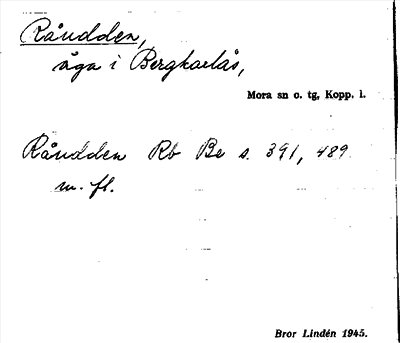 Råudden,
äga i Bergkarlås,
Mora sn o. tg, Kopp. l.
Råudden Rb Be s. 391, 489
m. fl.
Bror Lindén 1945.